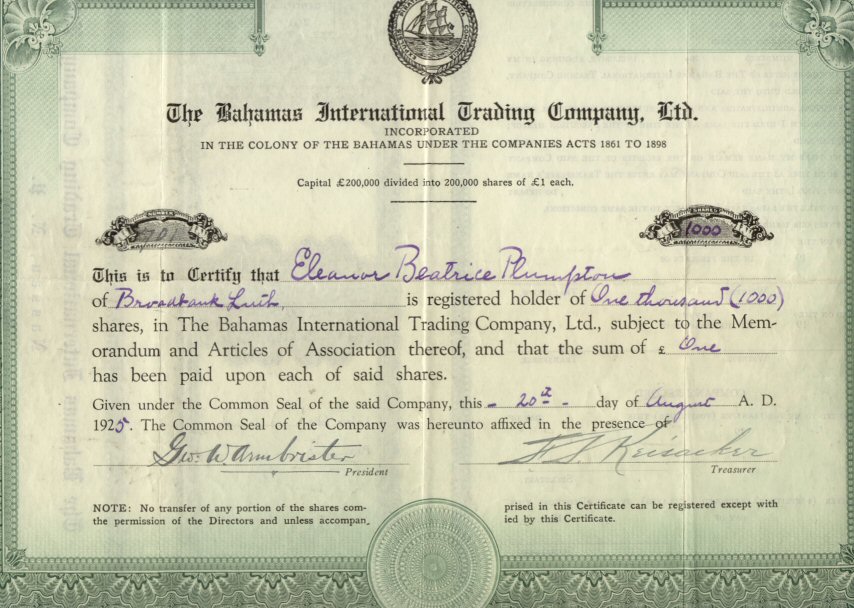 The Bahamas International Trading Company, Ltd.
INCORPORATED
IN THE COLONY OF THE BAHAMAS UNDER THE COMPANIES ACTS 1861 TO 1898
Capital £200,000 divided into 200,000 shares of £1 each.
NUMBER SHARES
701 1000
This is to Certify that Eleanor Beatrice Plumpton
of Broadbank is registered holder of One thousand (1000)
shares, in The Bahamas International Trading Company, Ltd., subject to the Mem-
orandum and Articles of Association thereof, and that the sum of £ One
has been paid upon each of said shares.
Given under the Common Seal of the said Company, this - 20th - day of August A. D.
1925. The Common Seal of the Company was hereunto affixed in the presence of
Geo. W. Armbrister
President Treasurer
NOTE: No transfer of any portion of the shares com- prised in this Certificate can be registered except with
the permission of the Directors and unless accompan- ied by this Certificate.